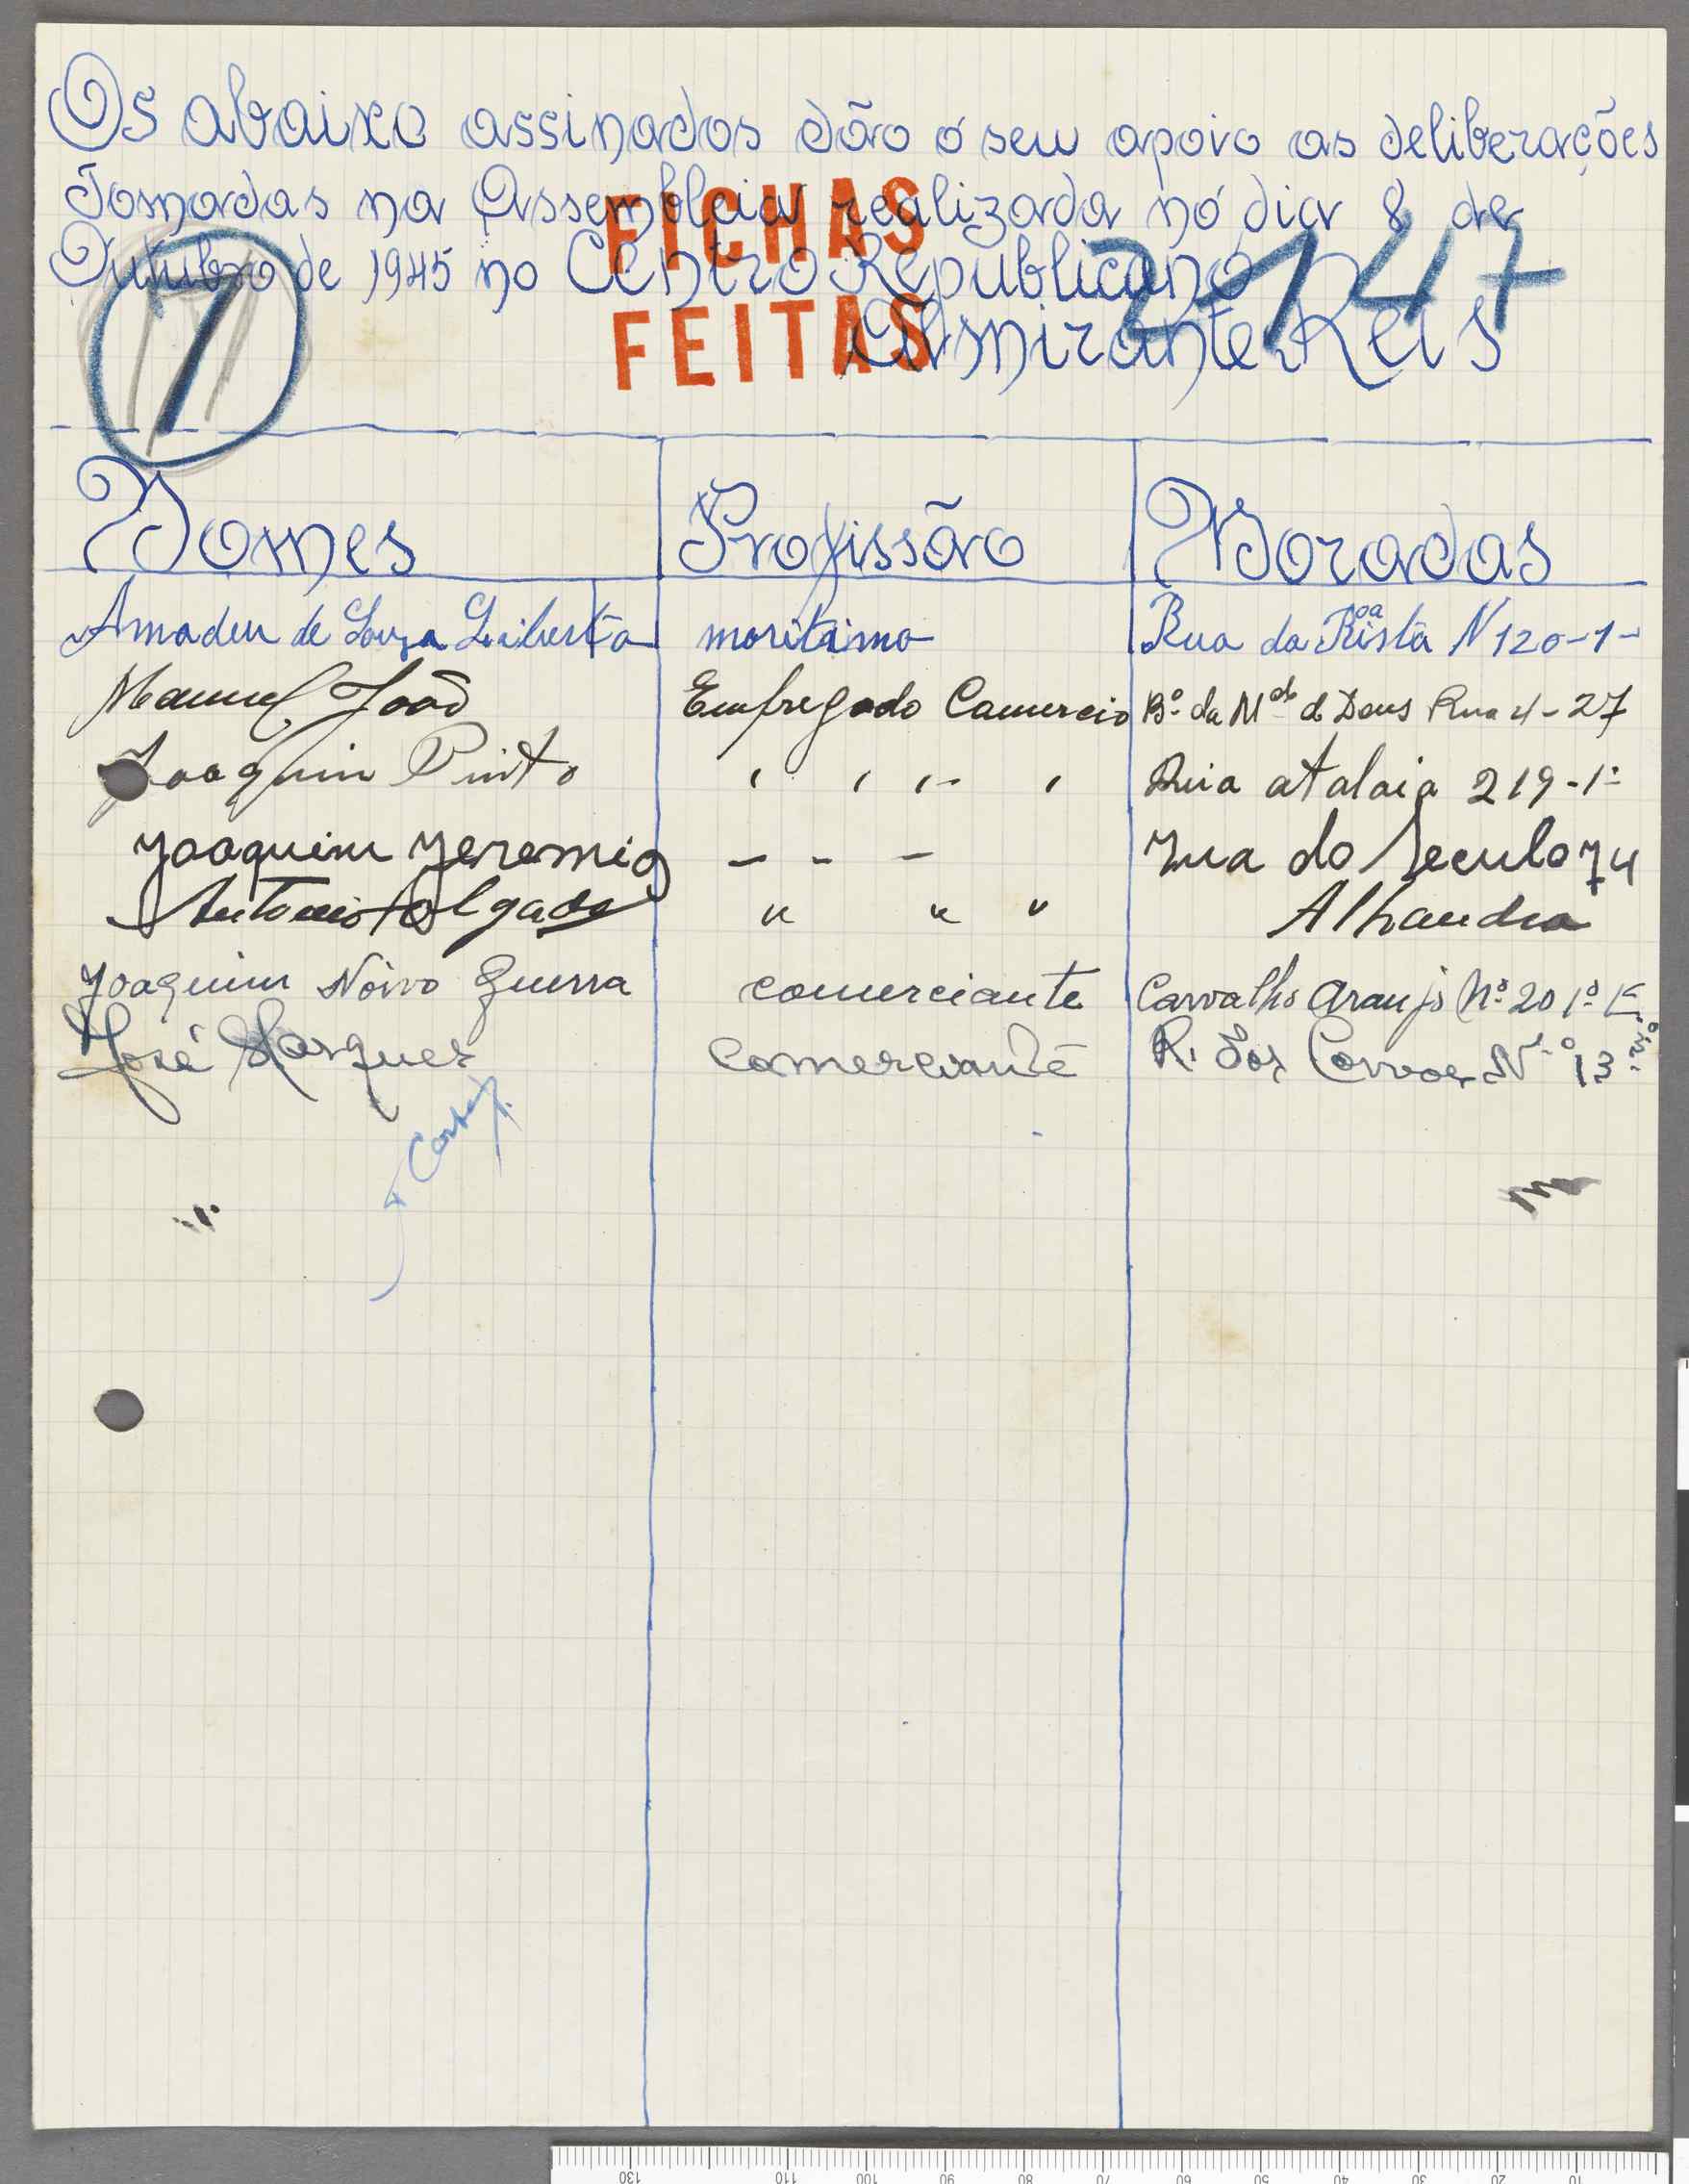 Os abaixo assinados dão ó seu apoio as deliberações
Tomadas na Assembleia realizada nó dia 8 de
Outubro de 1945 no Centro Republicano
Almirante Reis
FICHAS
FEITAS
7
2147
Nomes Profissão Moradas
Amadeu de Souza maritimo Rua da N 120-1-
Manuel João Empregado Comercio Bº da Mde de Deus Rua 4-27
Joaquim Pinto , , , , Rua atalaia 219-1º
Joaquim Jeremias - - - Rua do Seculo 74
Antonio " " " Alhandra
Joaquim Noivo Guerra comerciante Carvalho Araujo Nº 20 1º E
José Marques Comerciante R. Dos Correos Nº 13